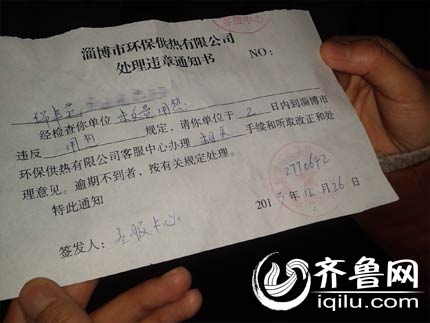 客服中心
淄博市环保供热有限公司
处理违章通知书
NO:
经检查你单位 未交费用热
违反 用热 规定，请你单位于 2 日内到淄博市
环保供热有限公司客服中心办理 相关 手续和听取改正和处
理意见。逾期不到者，按有关规定处理。
特此通知
2776642
签发人：客服中心
2013年12月26日
齐鲁网
iqilu.com